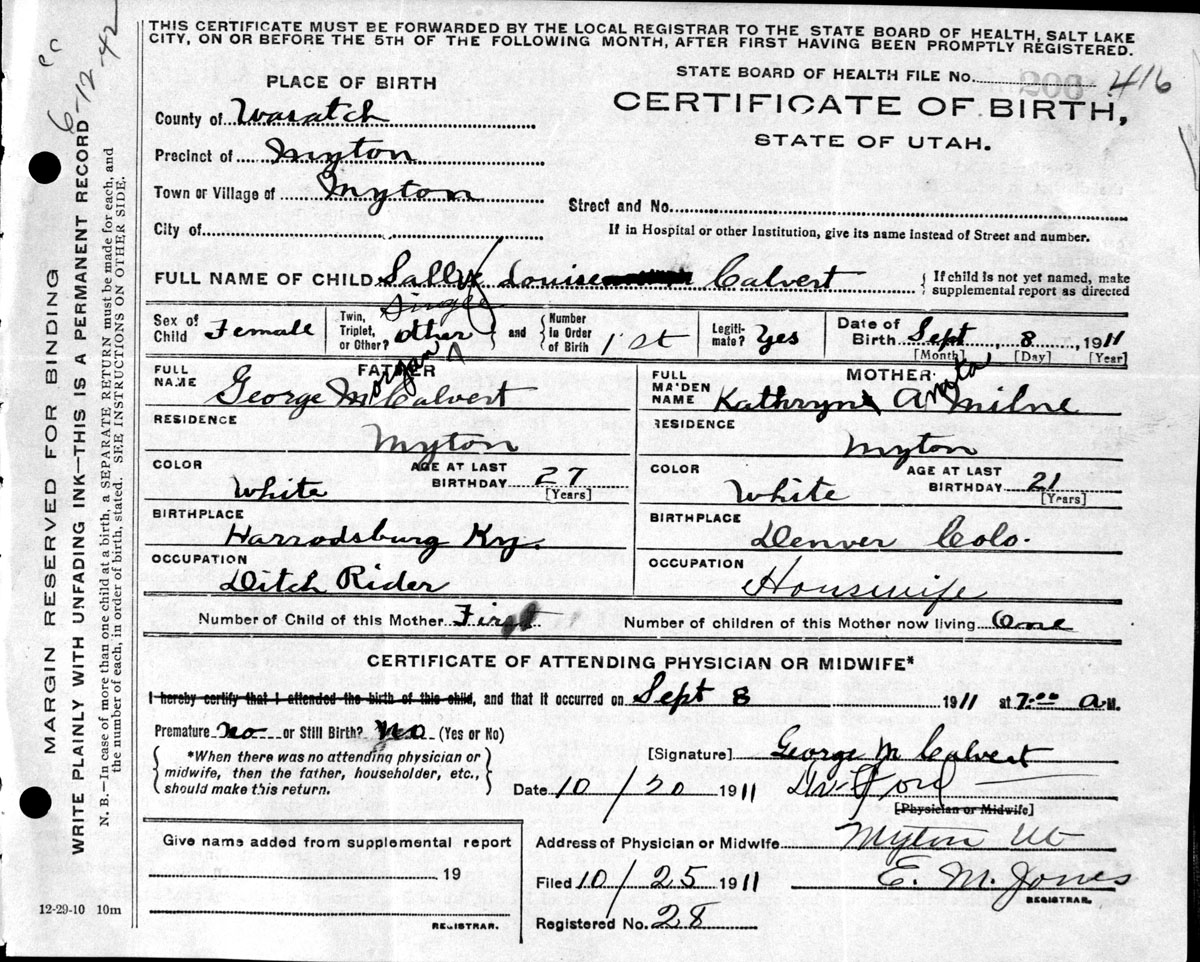 THIS CERTIFICATE MUST BE FORWARDED BY THE LOCAL REGISTRAR TO THE STATE BOARD OF HEALTH, SALT LAKE
CITY, ON OR BEFORE THE 5TH OF THE FOLLOWING MONTH, AFTER FIRST HAVING BEEN PROMPTLY REGISTERED.
6-12-42
PLACE OF BIRTH
STATE BOARD OF HEALTH FILE No. 416
County of Wasatch
CERTIFICATE OF BIRTH,
STATE OF UTAH.
Precinct of Myton
Town or Village of Myton
Street and No.
City of
If in Hospital or other Institution, give its name instead of Street and number.
FULL NAME OF CHILD Sally Louise Calvert
{ If child is not yet named, make
supplemental report as directed
Sex of Child Female
Twin, Triplet, or Other? Single other and Number in Order of Birth 1st
Legiti-mate? Yes
Date of Birth Sept 8 1911
[Month] [Day] [Year]
FATHER
FULL NAME George Morgan Calvert
RESIDENCE Myton
COLOR White
AGE AT LAST BIRTHDAY 27
[Years]
BIRTHPLACE Harrodsburg Ky.
OCCUPATION Ditch Rider
MOTHER
FULL MAIDEN NAME Kathryn Milne
RESIDENCE Myton
COLOR White
AGE AT LAST BIRTHDAY 21
[Years]
BIRTHPLACE Denver Colo.
OCCUPATION Housewife
Number of Child of this Mother First
Number of children of this Mother now living One
CERTIFICATE OF ATTENDING PHYSICIAN OR MIDWIFE*
I hereby certify that I attended the birth of this child, and that it occurred on Sept 8 1911 at 7:00 a M.
Premature no or Still Birth? no (Yes or No)
*When there was no attending physician or
midwife, then the father, householder, etc.,
should make this return.
[Signature] George M Calvert
Date 10/20 1911
Ford
[Physician or Midwife]
Give name added from supplemental report
19
REGISTRAR.
Address of Physician or Midwife Myton Ut
Filed 10/25 1911
E. M. Jones
REGISTRAR.
Registered No. 28
12-29-10 10m
MARGIN RESERVED FOR BINDING
WRITE PLAINLY WITH UNFADING INK—THIS IS A PERMANENT RECORD
N. B.—In case of more than one child at a birth, a SEPARATE RETURN must be made for each, and
the number of each, in order of birth, stated. SEE INSTRUCTIONS ON OTHER SIDE.